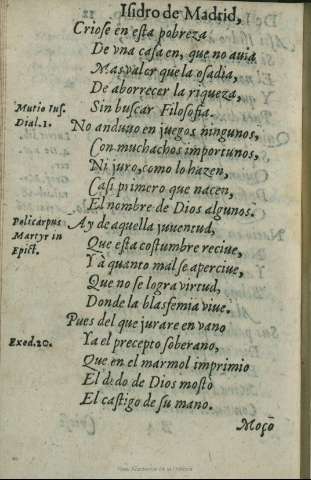 Isidro de Madrid,
Criose en esta pobreza
De vna casa en, que no auia
Mas valor que la osadia,
De aborrecer la riqueza,
Sin buscar Filosofia.
Mutio Ius.
Dial.1.
No anduuo en juegos ningunos,
Con muchachos importunos,
Ni juro, como lo hazen,
Casi primero que nacen,
El nombre de Dios algunos.
Policarpus
Martyr in
Epict.
Ay de aquella juuentud,
Que esta costumbre reciue,
Y à quanto mal se aperciue,
Que no se logra virtud,
Donde la blasfemia viue.
Pues del que jurare en vano
Exod.20.
Ya el precepto soberano,
Que en el marmol imprimio
El dedo de Dios mostò
El castigo de su mano.
Moço